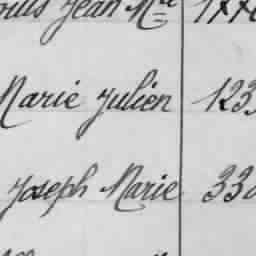 Jean M 177
Marie Julien 123
Joseph Marie 330